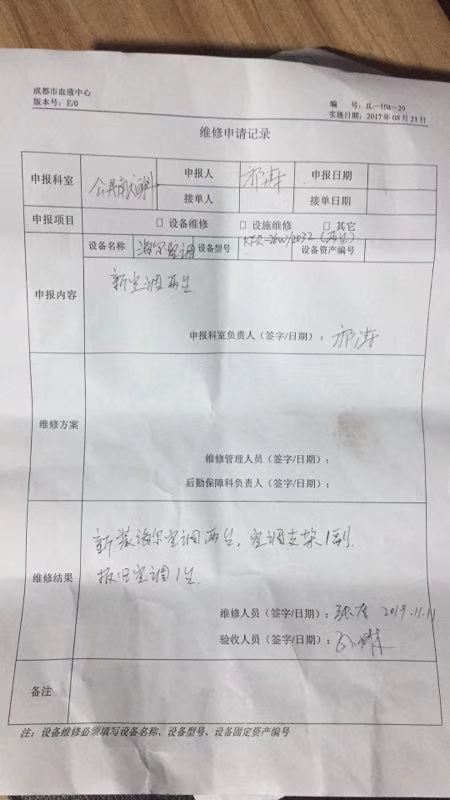 成都市血液中心
版本号：E/0
编 号：JL-H0-29
实施日期：2017年08月21日
维修申请记录
申报科室
申报人
申报日期
接单人
接单日期
申报项目 □ 设备维修 □ 设施维修 □ 其它
设备名称 海尔空调 设备型号 设备资产编号
申报内容
新空调两台
申报科室负责人（签字/日期）：
维修方案
维修管理人员（签字/日期）：
后勤保障科负责人（签字/日期）：
维修结果
新装海尔空调两台，空调支架1副.
拆旧空调1台.
维修人员（签字/日期）： 2019.11.11
验收人员（签字/日期）：
备注
注：设备维修必须填写设备名称、设备型号、设备固定资产编号